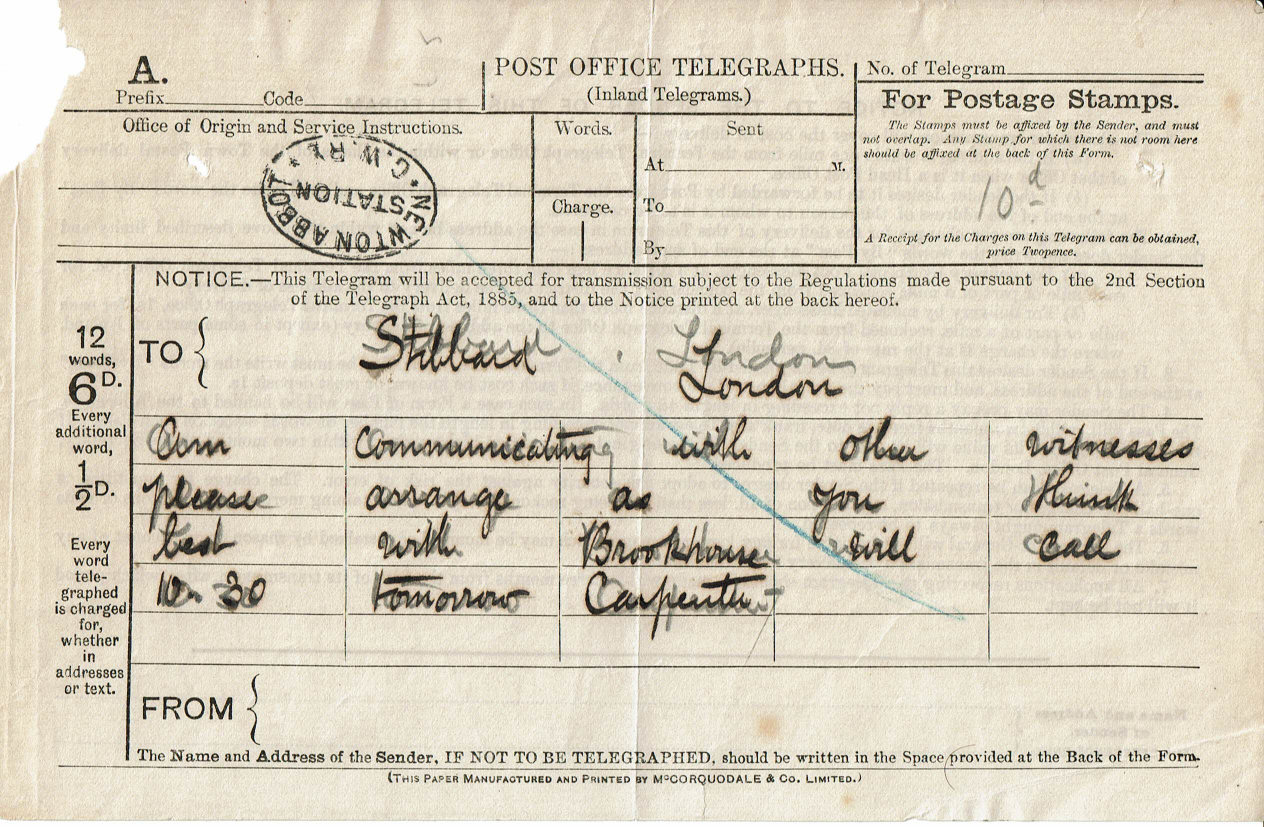 A.
Prefix Code
POST OFFICE TELEGRAPHS.
(Inland Telegrams.)
No. of Telegram
For Postage Stamps.
The Stamps must be affixed by the Sender, and must
not overlap. Any Stamp for which there is not room here
should be affixed at the back of this Form.
10d
A Receipt for the Charges on this Telegram can be obtained,
price Twopence.
Office of Origin and Service Instructions.
NEWTON ABBOT STATION G.W.RY.
Words.
Charge.
Sent
At M.
To
By
NOTICE.—This Telegram will be accepted for transmission subject to the Regulations made pursuant to the 2nd Section
of the Telegraph Act, 1885, and to the Notice printed at the back hereof.
12
words,
6D.
Every
additional
word,
1/2D.
Every
word
tele-
graphed
is charged
for,
whether
in
addresses
or text.
TO Stibbard London
London
Am communicating with other witnesses
please arrange as you think
best with Brookhouse will call
10.30 tomorrow Carpenter
FROM
The Name and Address of the Sender, IF NOT TO BE TELEGRAPHED, should be written in the Space provided at the Back of the Form.
(THIS PAPER MANUFACTURED AND PRINTED BY McCORQUODALE & CO. LIMITED.)